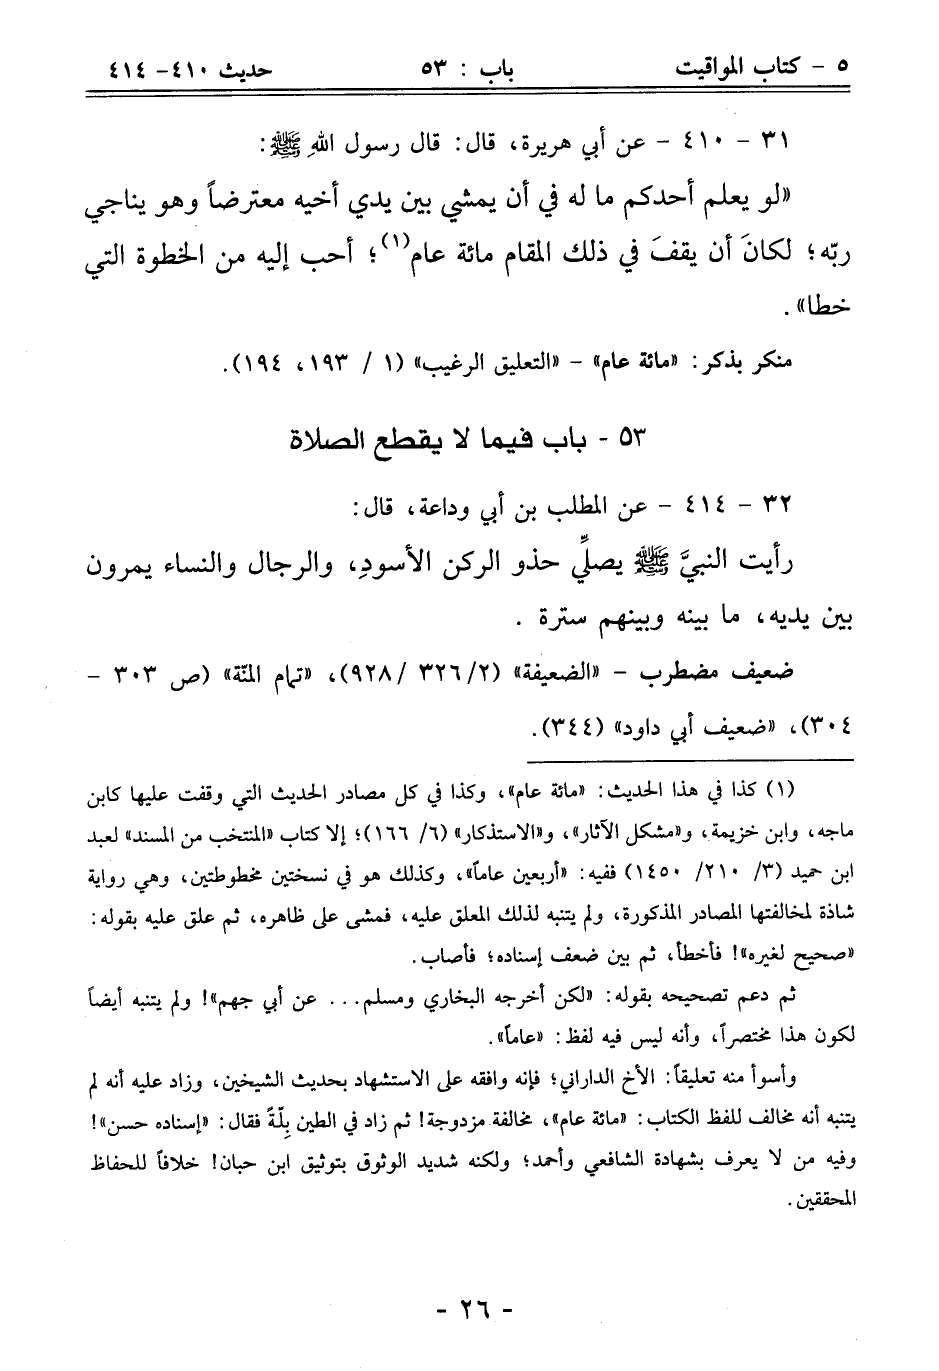 ٥ - كتاب المواقيت باب : ٥٣ حديث ٤١٠- ٤١٤
٣١ - ٤١٠ - عن أبي هريرة، قال: قال رسول اللهِ ﷺ:
«لو يعلم أحدكم ما له في أن يمشي بين يدي أخيه معترضاً وهو يناجي
ربّه؛ لكانَ أن يقفَ في ذلك المقام مائة عام(١)؛ أحب إليه من الخطوة التي
خطا».
منكر بذكر: «مائة عام» - «التعليق الرغيب» (١ / ١٩٣، ١٩٤).
٥٣ - باب فيما لا يقطع الصلاة
٣٢ - ٤١٤ - عن المطلب بن أبي وداعة، قال:
رأيت النبيَّ ﷺ يصلِّي حذو الركن الأسودِ، والرجال والنساء يمرون
بين يديه، ما بينه وبينهم سترة .
ضعيف مضطرب - «الضعيفة» (٢/ ٣٢٦/ ٩٢٨)، «تمام المنّة» (ص ٣٠٣ -
٣٠٤)، «ضعيف أبي داود» (٣٤٤).
(١) كذا في هذا الحديث: «مائة عام»، وكذا في كل مصادر الحديث التي وقفت عليها كابن
ماجه، وابن خزيمة، و«مشكل الآثار»، و«الاستذكار» (٦/ ١٦٦)؛ إلا كتاب «المنتخب من المسند» لعبد
ابن حميد (٣/ ٢١٠/ ١٤٥٠) ففيه: «أربعين عاماً»، وكذلك هو في نسختين مخطوطتين، وهي رواية
شاذة لمخالفتها المصادر المذكورة، ولم يتنبه لذلك المعلق عليه، فمشى على ظاهره، ثم علق عليه بقوله:
«صحيح لغيره»! فأخطأ، ثم بين ضعف إسناده؛ فأصاب.
ثم دعم تصحيحه بقوله: «لكن أخرجه البخاري ومسلم... عن أبي جهم»! ولم يتنبه أيضاً
لكون هذا مختصراً، وأنه ليس فيه لفظ: «عاماً».
وأسوأ منه تعليقاً: الأخ الداراني؛ فإنه وافقه على الاستشهاد بحديث الشيخين، وزاد عليه أنه لم
يتنبه أنه مخالف للفظ الكتاب: «مائة عام»، مخالفة مزدوجة! ثم زاد في الطين بِلّةً فقال: «إسناده حسن»!
وفيه من لا يعرف بشهادة الشافعي وأحمد؛ ولكنه شديد الوثوق بتوثيق ابن حبان! خلافاً للحفاظ
المحققين.
- ٢٦ -